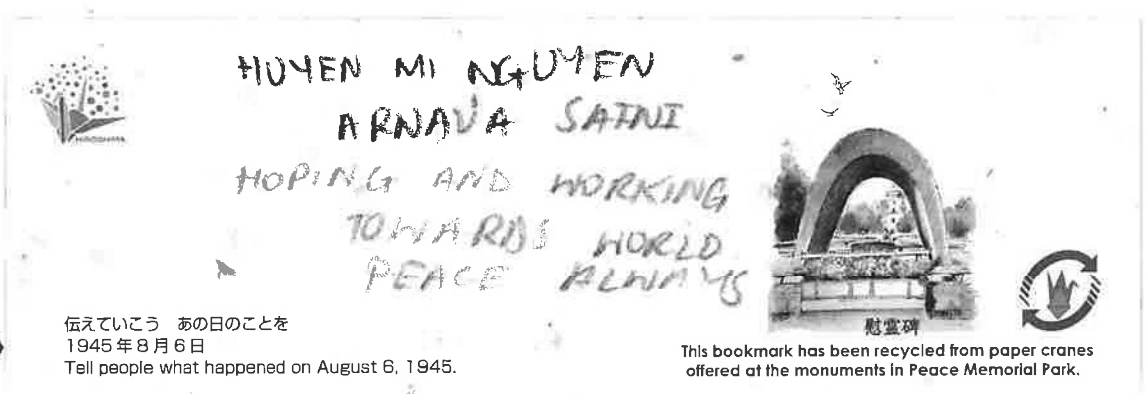 HUYEN MI NGUYEN
ARNAVA SAINI
HOPING AND WORKING
TOWARDS WORLD
PEACE ALWAYS
HIROSHIMA
慰霊碑
伝えていこう あの日のことを
1945年8月6日
Tell people what happened on August 6, 1945.
This bookmark has been recycled from paper cranes
offered at the monuments in Peace Memorial Park.